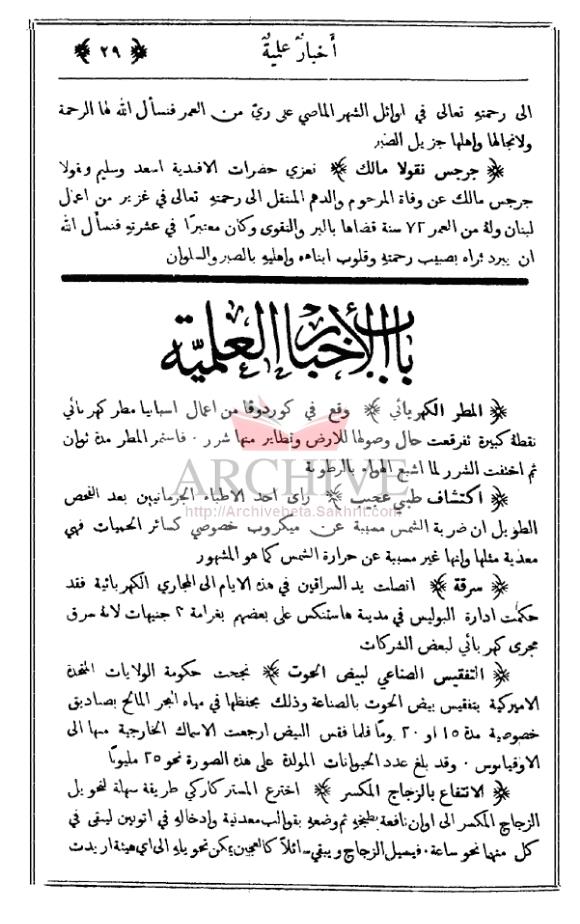 أخبار علمية
﴿ ٢٩ ﴾
الى رحمتهِ تعالى في اوائل الشهر الماضي على ريّ من العمر فنسأل الله لها الرحمة
ولانجالها واهلها جزيل الصبر
﴿ جرجس نقولا مالك ﴾ نعزي حضرات الافندية اسعد وسليم ونقولا
جرجس مالك عن وفاة المرحوم والدهم المنتقل الى رحمتهِ تعالى في غزير من اعمال
لبنان ولهُ من العمر ٧٢ سنة قضاها بالبر والتقوى وكان معتبرًا في عشرتهِ فنسأل الله
ان يبرد ثراه بصبيب رحمتهِ وقلوب ابنائه واهليهِ بالصبر والسلوان
باب الأخبار العلميّة
﴿ المطر الكهربائي ﴾ وقع في كوردوفا من اعمال اسبانيا مطر كهربائي
نقطهُ كبيرة تفرقعت حال وصولها للارض وتطاير منها شرر ٠ فاستمر المطر مدة ثوان
ثم اختفت الشرر لما اشبع الهواء بالرطوبة
ARCHIVE
http://Archivebeta.Sakhrit.com
﴿ اكتشاف طبي عجيب ﴾ رأى احد الاطباء الجرمانيين بعد الفحص
الطويل ان ضربة الشمس مسببة عن ميكروب خصوصي كسائر الحميات فهي
معدية مثلها وانها غير مسببة عن حرارة الشمس كما هو المشهور
﴿ سرقة ﴾ اتصلت يد السراقين في هذه الايام الى المجاري الكهربائية فقد
حكمت ادارة البوليس في مدينة هاستنكس على بعضهم بغرامة ٢ جنيهات لانهُ سرق
مجرى كهربائي لبعض الشركات
﴿ التفقيس الصناعي لبيض الحوت ﴾ نجحت حكومة الولايات المتحدة
الاميركية بتفقيس بيض الحوت بالصناعة وذلك بحفظها في مياه البحر المالح بصناديق
خصوصية مدة ١٥ او ٢٠ يومًا فلما فقس البيض ارجعت الاسماك الخارجية منها الى
الاوقيانوس ٠ وقد بلغ عدد الحيوانات المولدة على هذه الصورة نحو ٢٥ مليونًا
﴿ الانتفاع بالزجاج المكسر ﴾ اخترع المستر كاركي طريقة سهلة لتحويل
الزجاج المكسر الى اوان نافعة بطبخهِ ثم وضعهِ بقوالب معدنية وادخالهِ في اتونين ليبقى في
كل منهما نحو ساعة ٠ فيسيل الزجاج ويبقى سائلاً كالعجين يمكن تحويلهِ الى اي هيئة اريدت